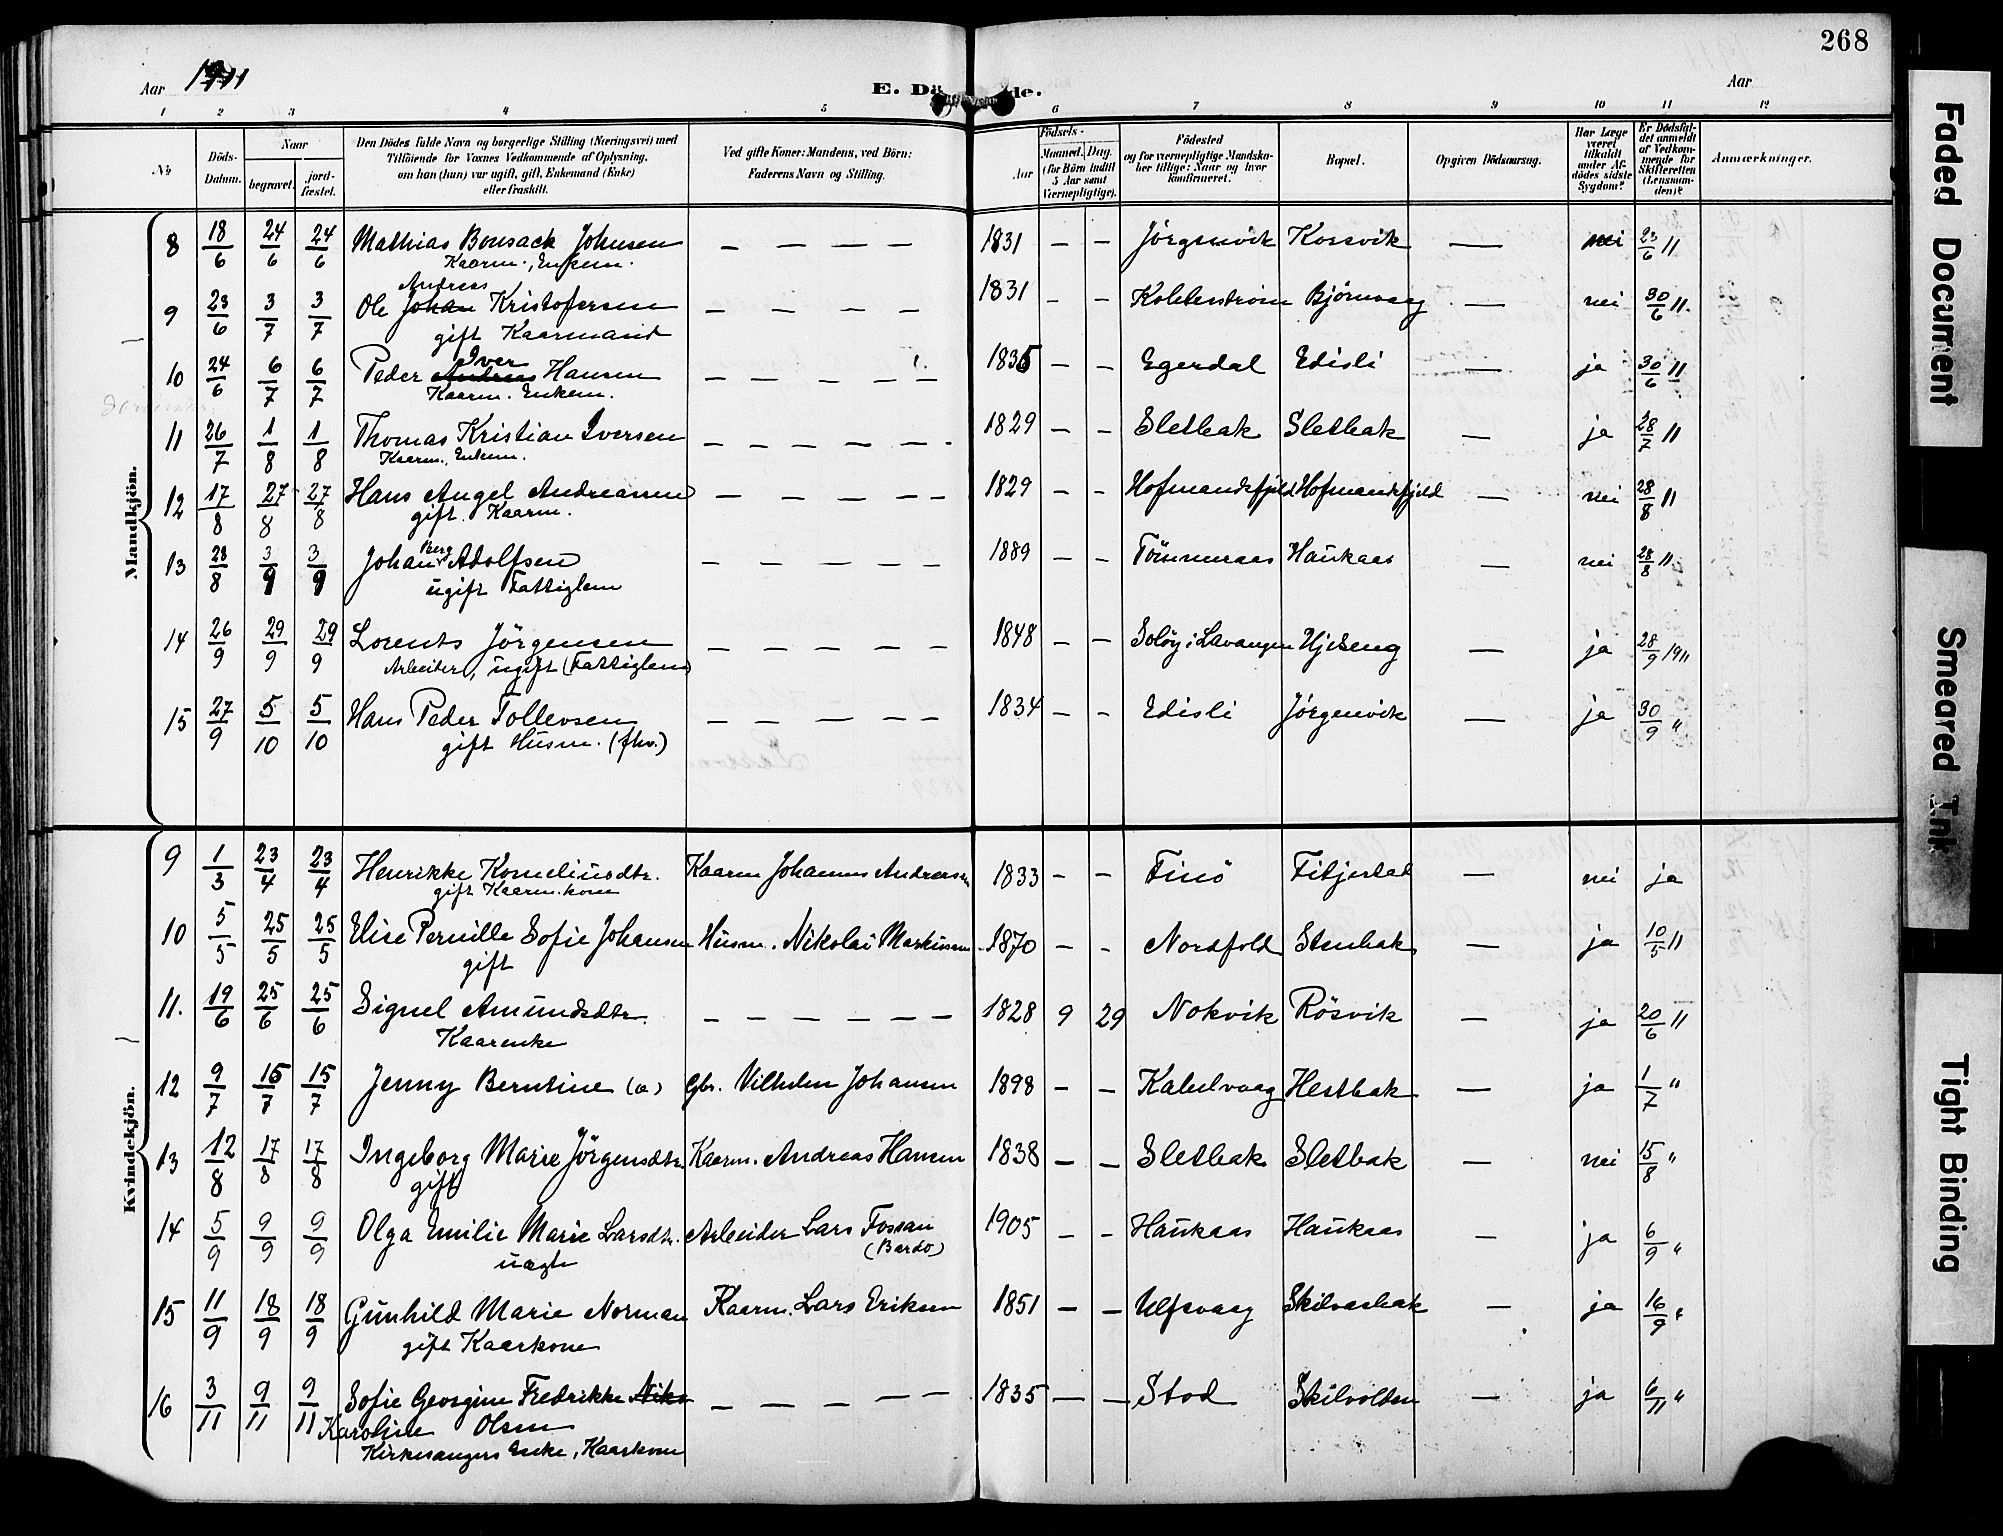 268
Aar 1911
E. Dö de.
Aar
1 2 3 4 5 6 7 8 9 10 11 12
No
Döds-Datum.
Naar
begravet.
jord-fæstet.
Den Dödes fulde Navn og borgerlige Stilling (Næringsvei) med
Tilföiende for Voxnes Vedkommende af Oplysning,
om han (hun) var ugift, gift, Enkemand (Enke)
eller fraskilt.
Ved gifte Koner: Mandens, ved Börn:
Faderens Navn og Stilling.
Födsels-
Aar
Maaned. Dag.
(for Börn indtil
5 Aar samt
Værnepligtige).
Födested
og for værnepligtige Mandska-
ber tillige: Naar og hvor
konfirmeret.
Bopæl.
Opgiven Dödsaarsag.
Har Læge
været
tilkaldt
under Af-
dödes sidste
Sygdom?
Er Dödsfal-
det anmeldt
af Vedkom-
mende for
Skifteretten
(Lensman-
den)?
Anmærkninger.
Mandkjön.
8 18/6 24/6 24/6 Mathias Bonsack Johnsen — — — — 1831 — — Jörgenvik Korsvik — nei 23/6 11
Kaarm., Enkem.
Andreas
9 23/6 3/7 3/7 Ole Johan Kristofersen — — — — 1831 — — Kobberström Bjørnvaag — nei 30/6 11.
gift Kaarmand
Iver
10 24/6 6/7 6/7 Peder Andreas Hansen — — — — — 1835 — — Egerdal Edisli — ja 30/6 11
Kaarm. Enkem.
11 26/7 1/8 1/8 Thomas Kristian Iversen — — — — — 1829 — — Sletbak Sletbak — ja 28/7 11
Kaarm., Enkem.
12 17/8 27/8 27/8 Hans Angel Andreassen — — — — 1829 — — Hofmandsfjeld Hofmandsfjeld — nei 28/8 11
gift. Kaarm.
Berg
13 28/8 3/9 3/9 Johan Adolfsen — — — — — 1889 — — Tömmeraas Haukaas — nei 28/8 11
ugift Fattiglem
14 26/9 29/9 29/9 Lorents Jörgensen — — — — — 1848 — — Soløy i Lavangen Ujeseng — ja 28/9 1911
Arbeider, ugift (Fattiglem)
15 27/9 5/10 5/10 Hans Peder Tollevsen — — — — — 1834 — — Edisli Jörgenvik — ja 30/9 "
gift Husm. (fhv.)
Kvindekjön.
9 1/3 23/4 23/4 Henrikke Korneliusdtr. Kaarm Johannes Andreassen 1833 — — Finö Fitjestad — nei ja
gift Kaarm.kone
10 5/5 25/5 25/5 Elise Pernille Sofie Johansen Husm. Nikolai Markussen 1870 — — Nordfold Stenbak — ja 10/5 11
gift
11. 19/6 25/6 25/6 Signel Amundsdtr. — — — — — — 1828 9 29 Nokvik Rösvik — ja 20/6 11
Kaarenke
12 9/7 15/7 15/7 Jenny Berntine (u) Gbr. Vilhelm Johansen 1898 — — Kabelvaag Hestbak — ja 1/7 "
13 12/8 17/8 17/8 Ingeborg Marie Jörgensdtr. Kaarm. Andreas Hansen 1838 — — Sletbak Sletbak — nei 15/8 "
gift
14 5/9 9/9 9/9 Olga Emilie Marie Larsdtr. Arbeider Lars Fossan 1905 — — Haukaas Haukaas — ja 6/9 "
uægte (Bardo)
15 11/9 18/9 18/9 Gunhild Marie Norman Kaarm. Lars Eriksen 1851 — — Ulfsvaag Skilvasbak — ja 16/9 "
gift Kaarkone
16 3/11 9/11 9/11 Sofie Georgine Fredrikke Niko — — — — — 1835 — — Stod Skilvolden — ja 6/11 "
Karoline Olsen
Kirkesangers Enke, Kaarkone
Faded Document
Smeared Ink
Tight Binding